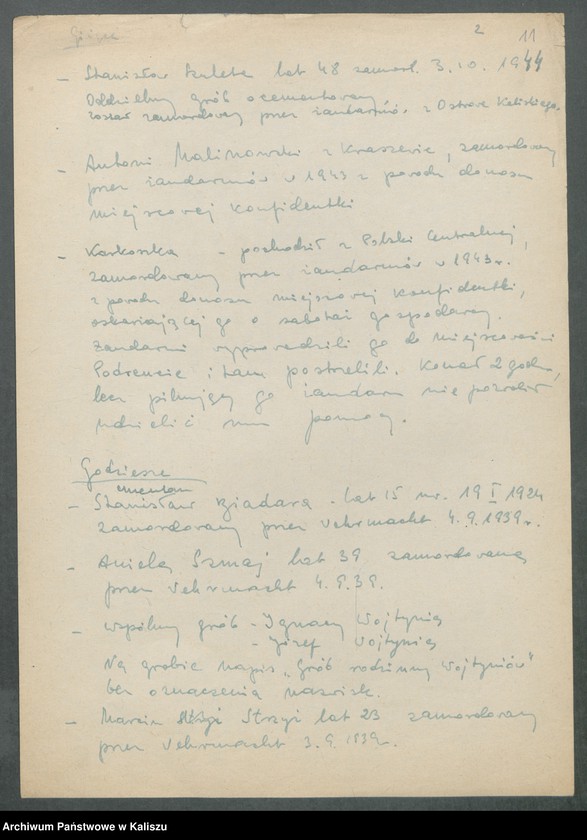 2 11
– Stanisław Kuleta lat 48 zamord. 3.10.1944
Oddzielny grób ocementowany
został zamordowany przez żandarmów z Ostrowa Kaliskiego.
– Antoni Malinowski z Kraszewic, zamordowany
przez żandarmów w 1943 z powodu donosu
miejscowej konfidentki
– Karkoszka – pochodził z Polski Centralnej,
zamordowany przez żandarmów w 1943 r.
z powodu donosu miejscowej konfidentki,
oskarżającej go o sabotaż gospodarczy.
Żandarmi wyprowadzili go do miejscowości
i tam postrzelili. Konał 2 godz.,
lecz pilnujący go żandarm nie pozwolił
udzielić mu pomocy.
Godziesze
cmentarz
– Stanisław lat 15 ur. 19 I 1924
zamordowany przez Wehrmacht 4.9.1939 r.
– Aniela Szmaj lat 39 zamordowana
przez Wehrmacht 4.9.39.
– wspólny grób – Ignacy Wojtynia
– Józef Wojtynia
Na grobie napis „Grób rodzinny Wojtyniów"
bez oznaczenia nazwisk.
– Marcin Strzyż lat 23 zamordowany
przez Wehrmacht 3.9.1939 r.
Archiwum Państwowe w Kaliszu